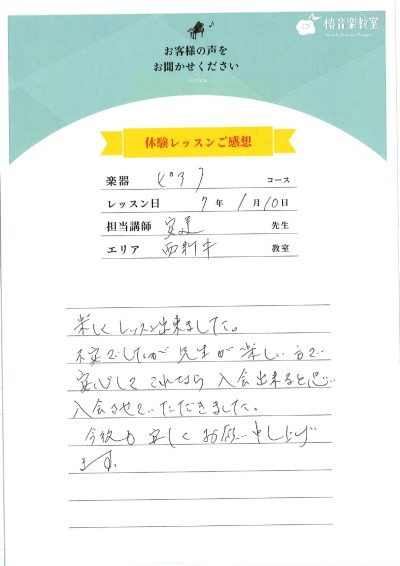 椿音楽教室
お客様の声を
お聞かせください
Voice
体験レッスンご感想
楽器 ピアノ コース
レッスン日 7年1月10日
担当講師 安達 先生
エリア 西新井 教室
楽しくレッスン出来ました。
不安でしたが先生が楽しい方で
安心してこれなら入会出来ると思い
入会させていただきました。
今後も宜しくお願い申し上げ
ます。